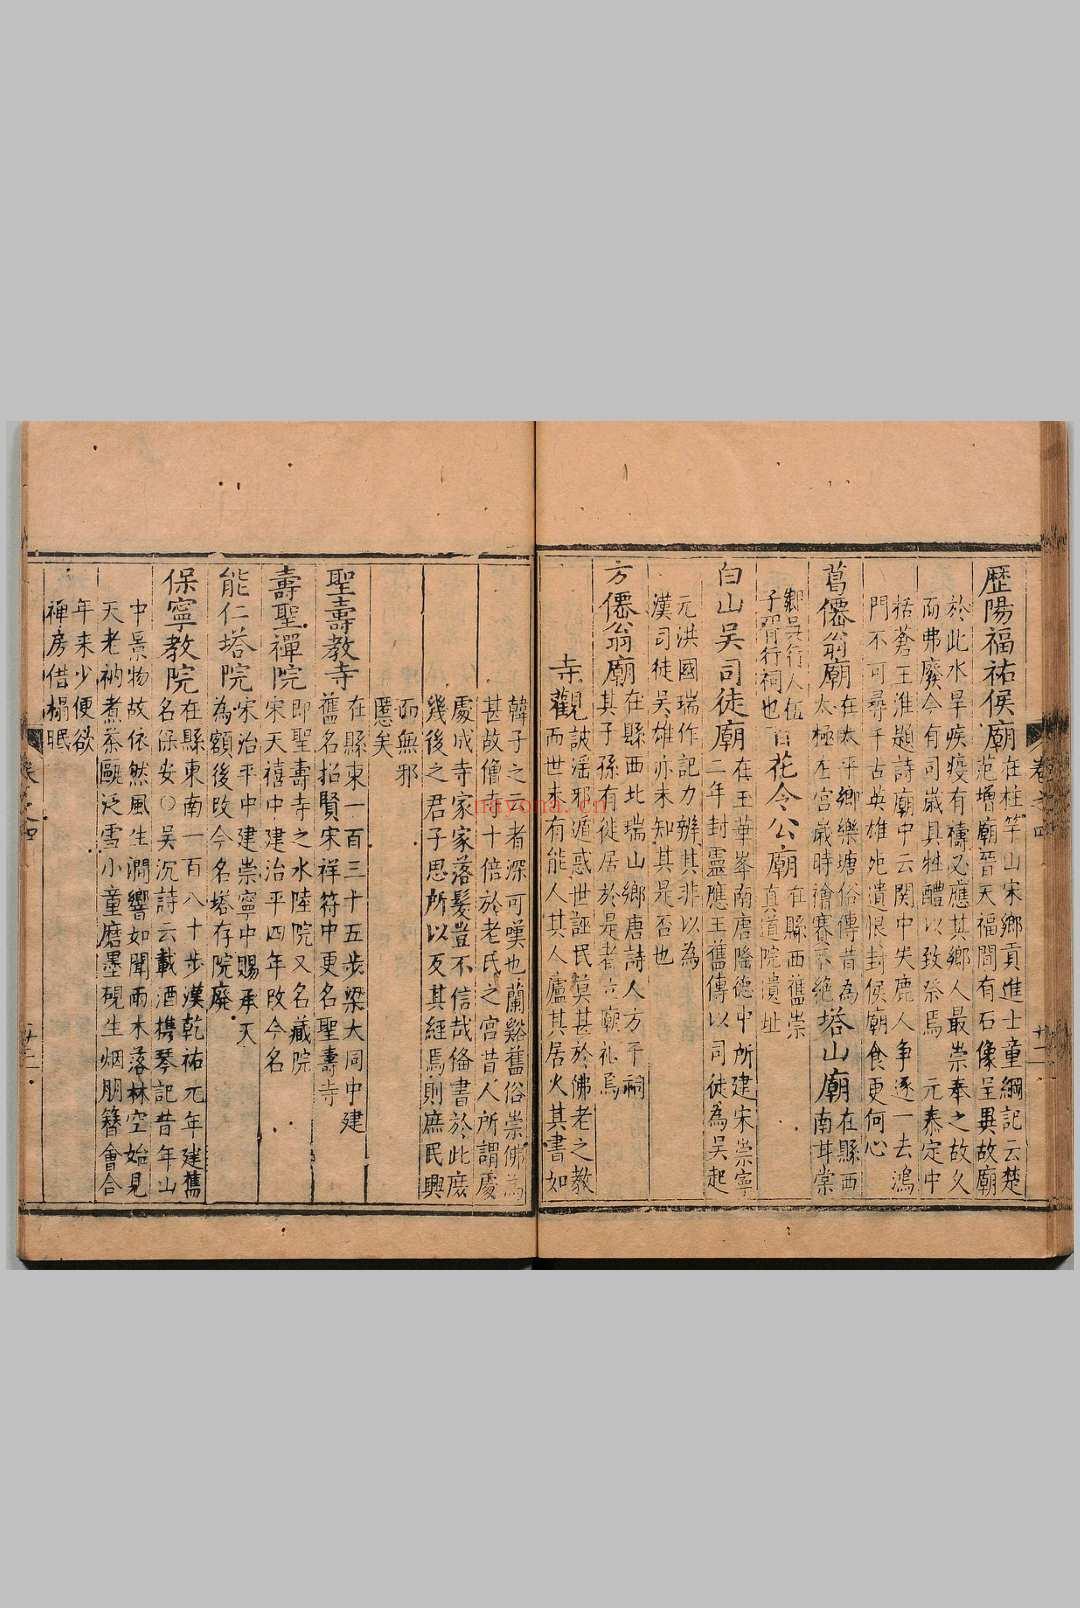 歷陽福祐侯廟
在柱竿山宋鄉貢進士童綱記云楚
范增廟晉天福間有石像呈異故廟
於此水旱疾疫有禱必應其鄉人最崇奉之故久
而弗廢今有司歲具牲醴以致祭焉 元泰定中
栝蒼王淮題詩廟中云関中失鹿人爭逐一去鴻
門不可尋千古英雄死遺恨封侯廟食更何心
葛僊翁廟
在太平鄉樂塘俗傳昔為
太極左宮歲時禬賽不絶
塔山廟
在縣西
南耳棠
鄉吳行人伍
子胥行祠也
百花令公廟
在縣西舊崇
真道院遺址
白山吳司徒廟
在玉華峯南唐隆德中所建宋崇寧
二年封靈應王舊傳以司徒為吳起
元洪國瑞作記力辨其非以為
漢司徒吳雄亦未知其是否也
方僊翁廟
在縣西北瑞山鄉唐詩人方干祠
其子孫有徙居於是者立廟礼焉
寺觀
詖淫邪遁惑世誣民莫甚於佛老之教
而世未有能人其人廬其居火其書如
韓子之云者深可嘆也蘭谿舊俗崇佛為
甚故僧寺十倍於老氏之宮昔人所謂慶
處成寺家家落髪豈不信哉俻書於此庶
幾後之君子思所以反其經焉則庶民興
而無邪
慝矣
聖壽教寺
在縣東一百三十五步梁大同中建
舊名招賢宋祥符中更名聖壽寺
壽聖禪院
即聖壽寺之水陸院又名藏院
宋天禧中建治平四年改今名
能仁塔院
宋治平中建崇寧中賜承天
為額後改今名塔存院廢
保寧教院
在縣東南一百八十步漢乾祐元年建舊
名保安〇吳沉詩云載酒携琴記昔年山
中景物故依然風生澗響如聞雨木落林空始見
天老衲煮茶甌泛雪小童磨墨硯生烟朋簪會合
年来少便欲
禅房借榻眠
卷之四
十二
navona.cn